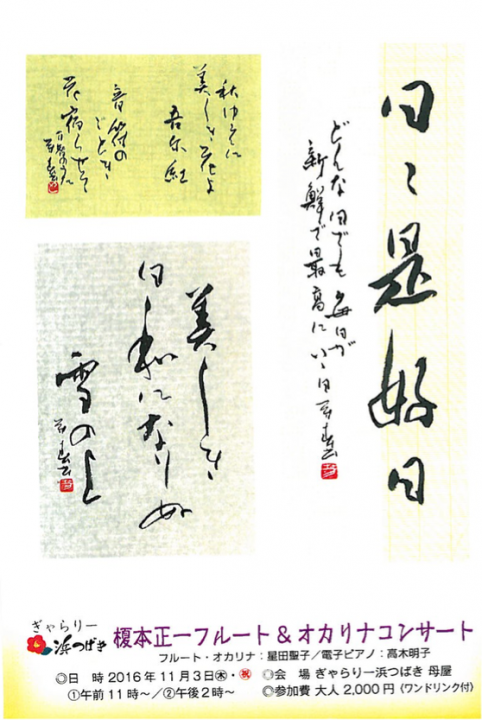 日々是好日
どんな日でも毎日が
新鮮で最高にいい日
秋ゆえに
美しき花よ
吾亦紅
音符の
ごとき
美しき
日和になりぬ
雪の上
ぎゃらりー
浜つばき
榎本正一フルート&オカリナコンサート
フルート・オカリナ:星田聖子/電子ピアノ:高木明子
◎日 時 2016年11月3日㊍・㊗
①午前11時~/②午後2時~
◎会 場 ぎゃらりー浜つばき 母屋
◎参加費 大人 2,000円〈ワンドリンク付〉